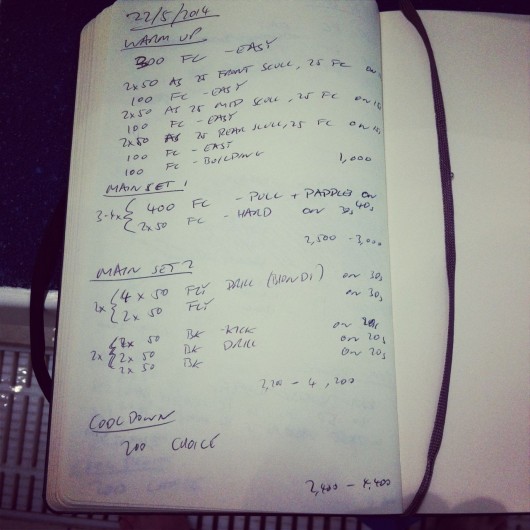 22/5/2014
WARM UP
300 FC - EASY
2x50 AS 25 FRONT SCULL, 25 FC ON
100 FC - EASY
2x50 AS 25 MID SCULL, 25 FC ON 15
100 FC - EASY
2x50 AS 25 REAR SCULL, 25 FC ON 15
100 FC - EASY
100 FC - BUILDING
1,000
MAIN SET 1
3-4x { 400 FC - PULL + PADDLES ON 40s
2x50 FC - HARD ON 30s
2,500 - 3,000
MAIN SET 2
2x { 4 x 50 FLY DRILL (BIONDI) ON 30s
2 x 50 FLY ON 30s
2x { 2x 50 BK - KICK ON 20s
2x 50 BK DRILL ON 20s
2x 50 BK ON 20s
- 4,200
COOL DOWN
200 CHOICE
- 4,400